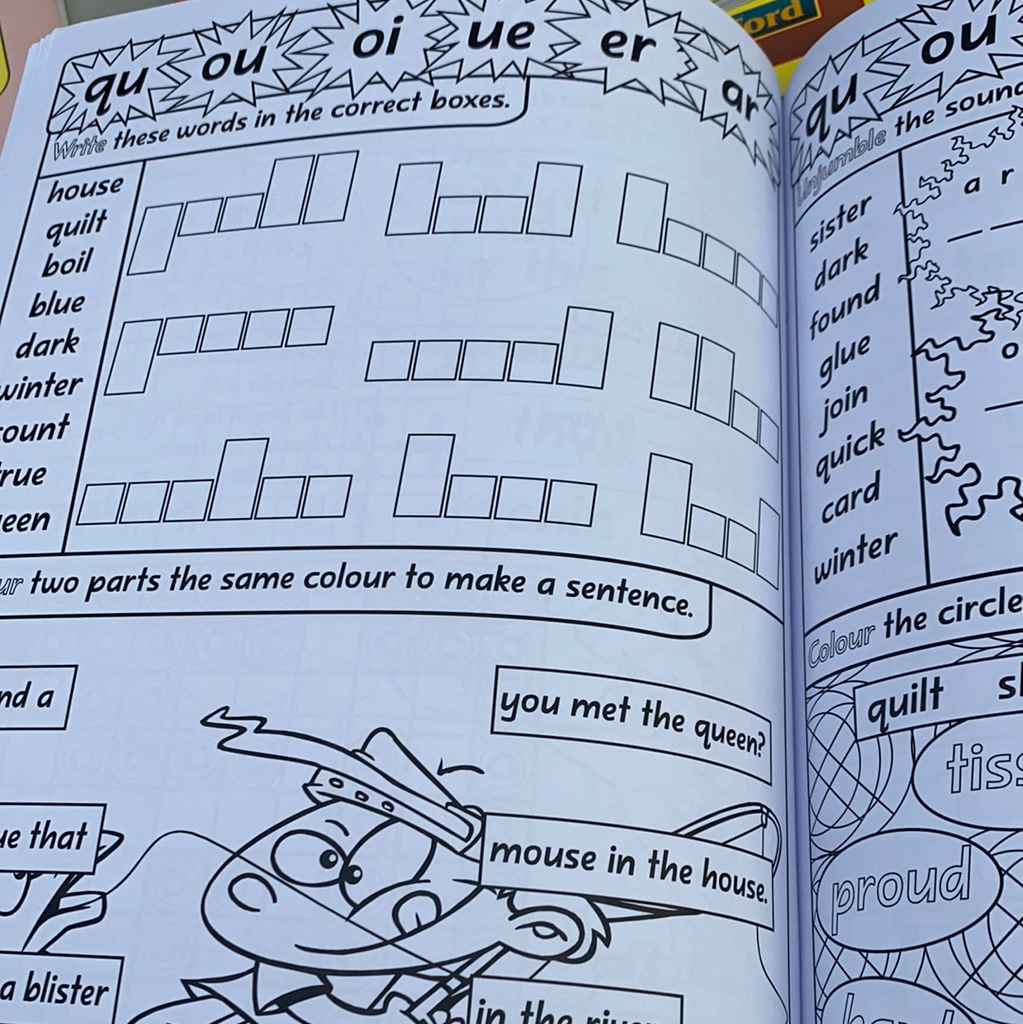 ord
qu ou oi ue er ar
Write these words in the correct boxes.
house
quilt
boil
blue
dark
winter
count
true
een
ur two parts the same colour to make a sentence.
nd a
you met the queen?
ue that
mouse in the house.
a blister
in the river
qu ou
Unjumble the sound
a r
sister
dark
found
o
glue
join
quick
card
winter
Colour the circle
quilt sl
tiss
proud